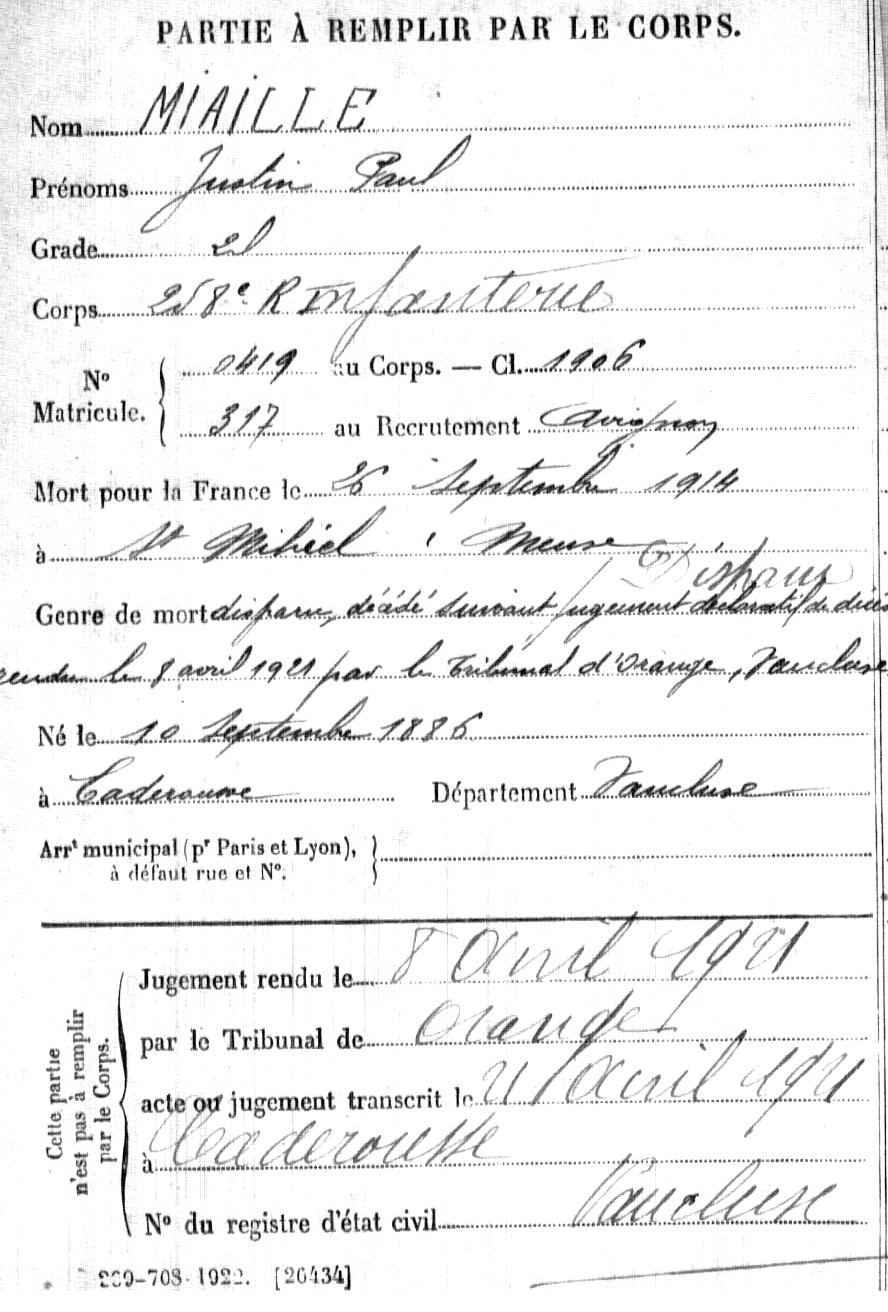 PARTIE À REMPLIR PAR LE CORPS.
Nom MIAILLE
Prénoms Justin Paul
Grade 2l
Corps 258e R Infanterie
No Matricule. 0419 au Corps. — Cl. 1906
317 au Recrutement Avignon
Mort pour la France le 26 Septembre 1914
à St Mihiel, Meuse
Disparu
Genre de mort disparu, décédé suivant jugement déclaratif de décès
rendu le 8 avril 1921 par le Tribunal d'Orange, Vaucluse
Né le 10 Septembre 1886
à Caderousse Département Vaucluse
Arrt municipal (pr Paris et Lyon),
à défaut rue et No.
Cette partie n'est pas à remplir par le Corps.
Jugement rendu le 8 Avril 1921
par le Tribunal de Orange
acte ou jugement transcrit le 21 Avril 1921
à Caderousse
No du registre d'état civil Vaucluse
-708-1922. [26434]